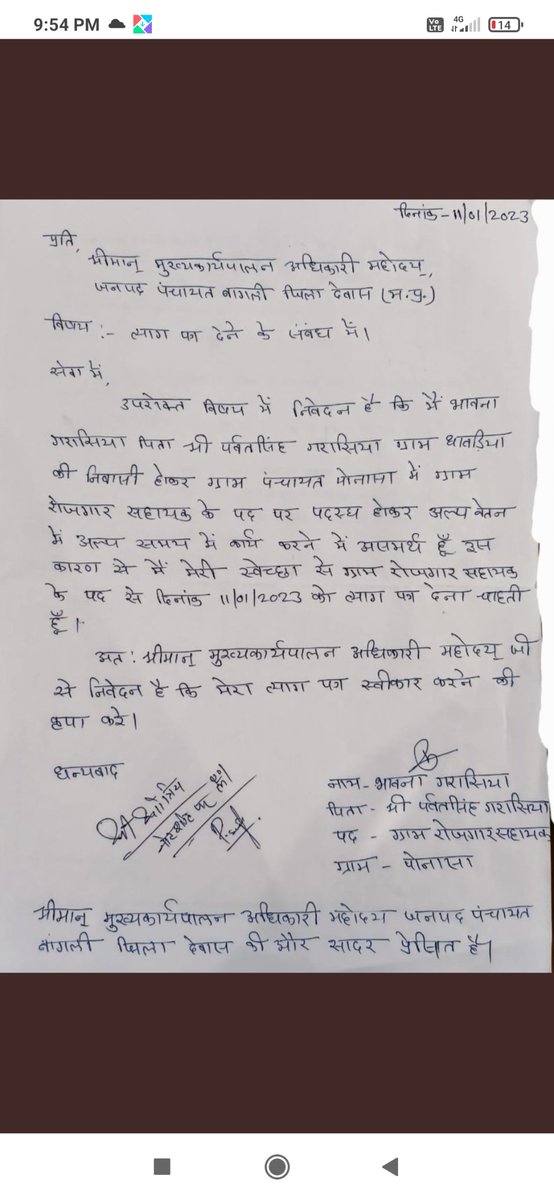 9:54 PM
Vo LTE 4G 14
दिनांक-11/01/2023
प्रति,
श्रीमान् मुख्यकार्यपालन अधिकारी महोदय,
जनपद पंचायत बागली जिला देवास (म.प्र.)
विषय:- त्याग पत्र देने के संबंध में।
सेवा में,
उपरोक्त विषय में निवेदन है कि मैं भावना
गरासिया पिता श्री पर्वतसिंह गरासिया ग्राम धावडिया
की निवासी होकर ग्राम पंचायत पोनासा में ग्राम
रोजगार सहायक के पद पर पदस्थ होकर अल्प वेतन
में अल्प समय में कार्य करने में असमर्थ हूँ इस
कारण से मैं मेरी स्वेच्छा से ग्राम रोजगार सहायक
के पद से दिनांक 11/01/2023 को त्याग पत्र देना चाहती
हूँ।
अत: श्रीमान् मुख्यकार्यपालन अधिकारी महोदय् जी
से निवेदन है कि मेरा त्याग पत्र स्वीकार करने की
कृपा करे।
धन्यबाद
नाम- भावना गरासिया
पिता - श्री पर्वतसिंह गरासिया
पद - ग्राम रोजगार सहायक
ग्राम - पोनासा
श्रीमान् मुख्यकार्यपालन अधिकारी महोदय जनपद पंचायत
बागली जिला देवास की और सादर प्रेसित है।